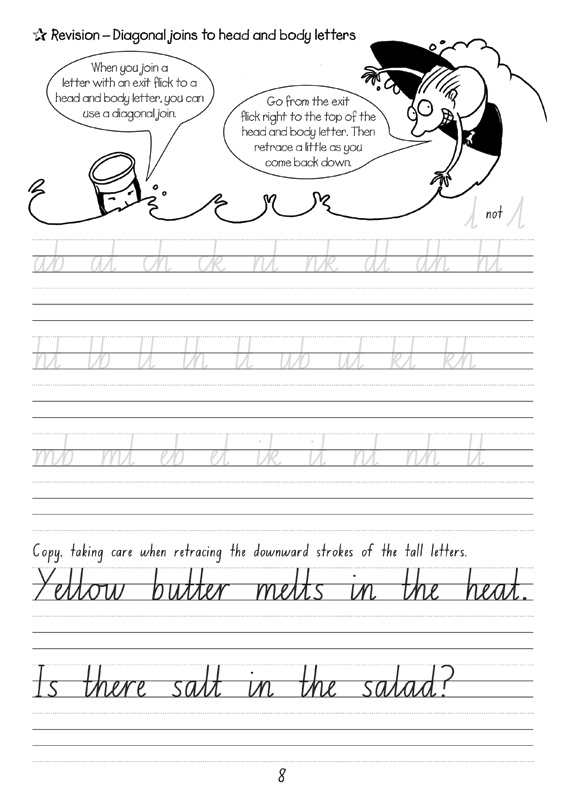 Revision – Diagonal joins to head and body letters
When you join a
letter with an exit flick to a
head and body letter, you can
use a diagonal join.
Go from the exit
flick right to the top of the
head and body letter. Then
retrace a little as you
come back down.
l not l
ab al ch ck nl nk dl dh hl
ht lb ll th ll ub ul kl kh
mb ml eb et ik it nt nh ll
Copy, taking care when retracing the downward strokes of the tall letters.
Yellow butter melts in the heat.
Is there salt in the salad?
8